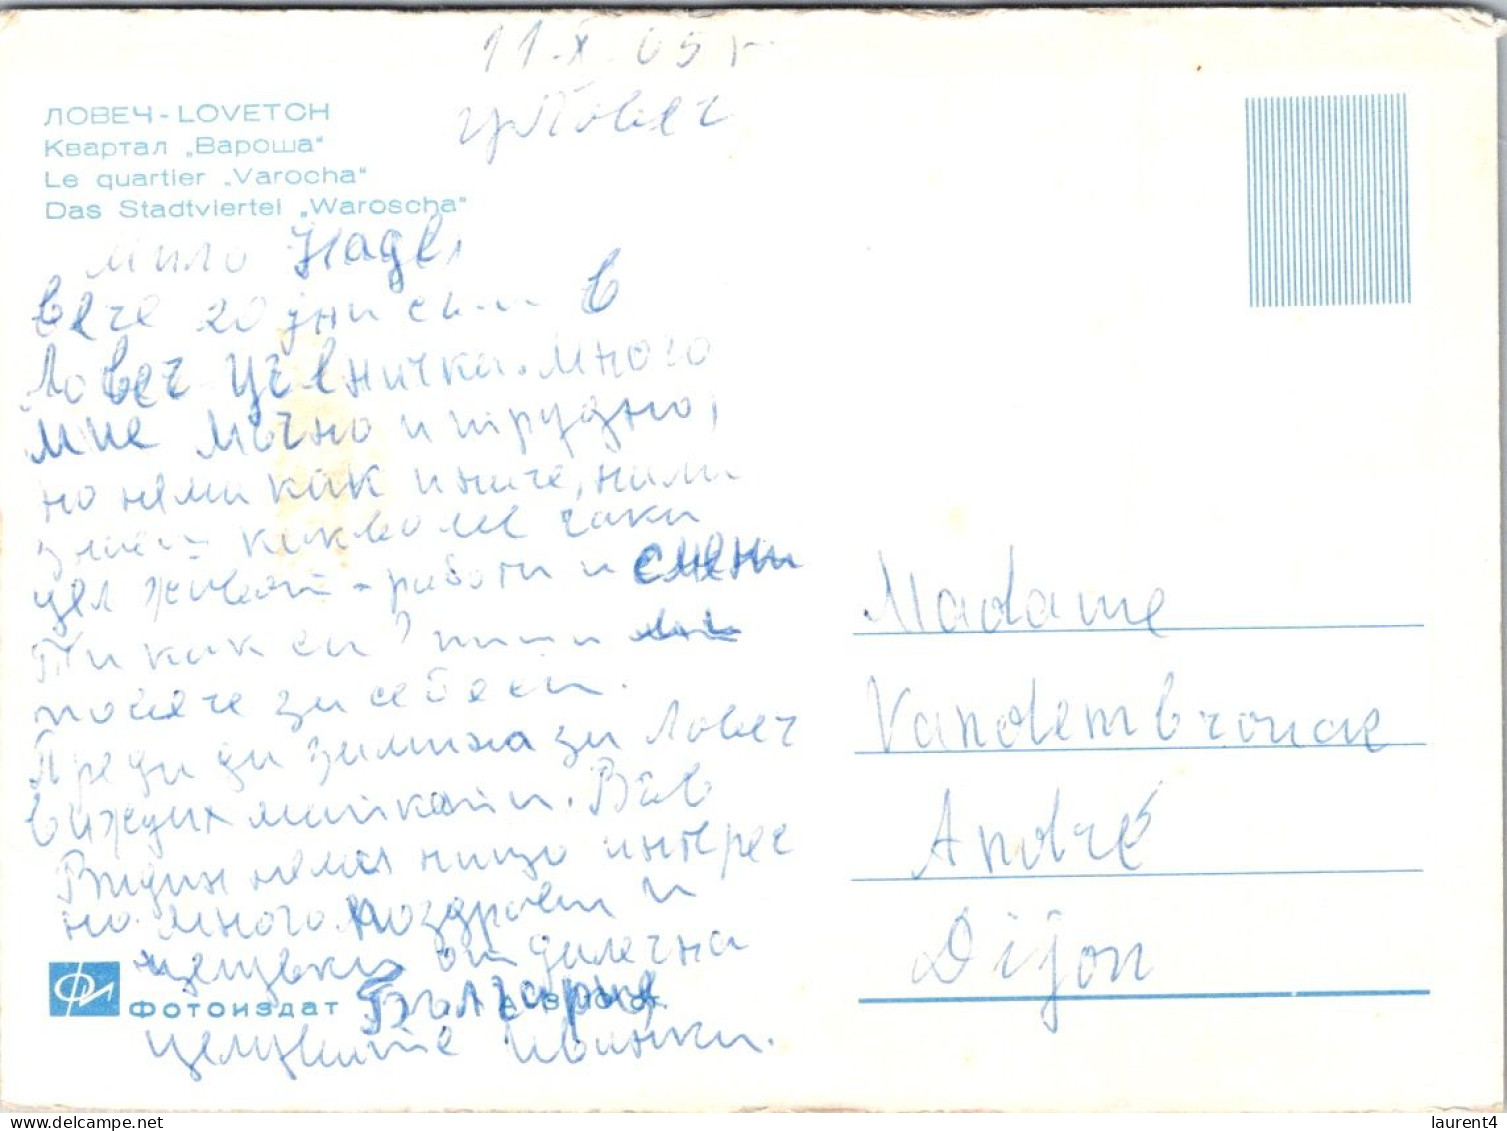 11.X.65 г.
гр Ловеч
ЛОВЕЧ - LOVETCH
Квартал „Вароша"
Le quartier „Varocha"
Das Stadtviertel „Waroscha"
Мила Надя,
вече 20 дни съм в
Ловеч ученичка. Много
ми е мъчно и трудно,
но няма как иначе, нима
знаеш какво ме чака
цял живот - работа и
Ти как си? пиши
повече за себе си.
Преди да замина за Ловеч
виждах майка ти. Във
Видин няма нищо интерес
но. Много поздрави и
целувки от далечна
България
целувките Иванка.
ФОТОИЗДАТ
Madame
Vandembroucke
André
Dijon
laurent4
www.delcampe.net